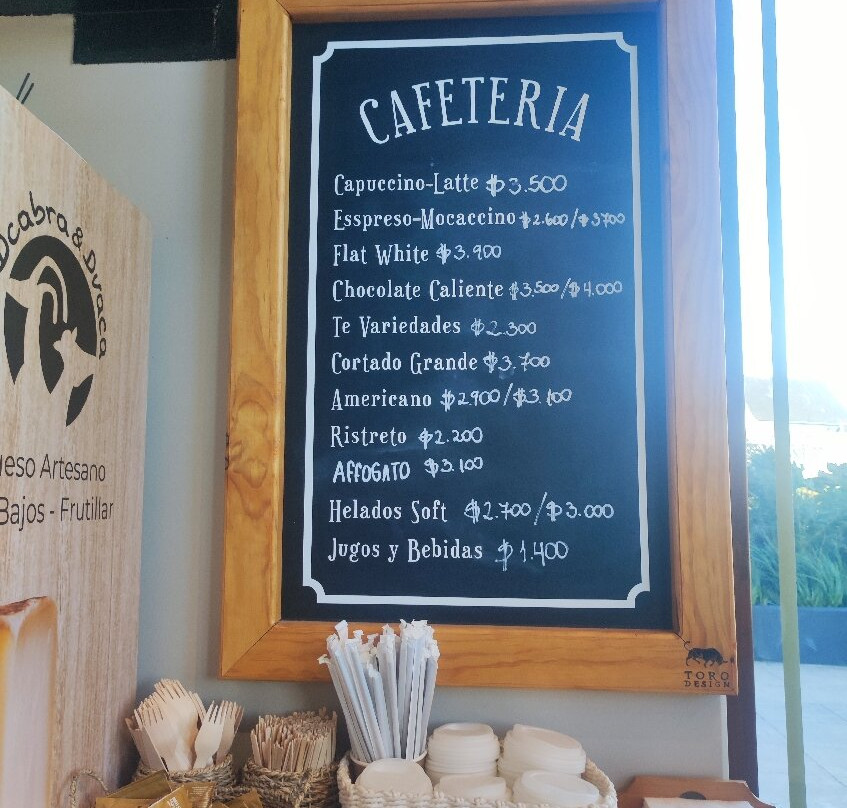 CAFETERIA
Capuccino-Latte $3.500
Esspreso-Mocaccino $2.600/$3700
Flat White $3.900
Chocolate Caliente $3.500/$4.000
Te Variedades $2.300
Cortado Grande $3.700
Americano $2900/$3.100
Ristreto $2.200
AFFOGATO $3.100
Helados Soft $2.700/$3.000
Jugos y Bebidas $1.400
Dcabra & Dvaca
Artesano
Bajos - Frutillar
TORO
DESIGN